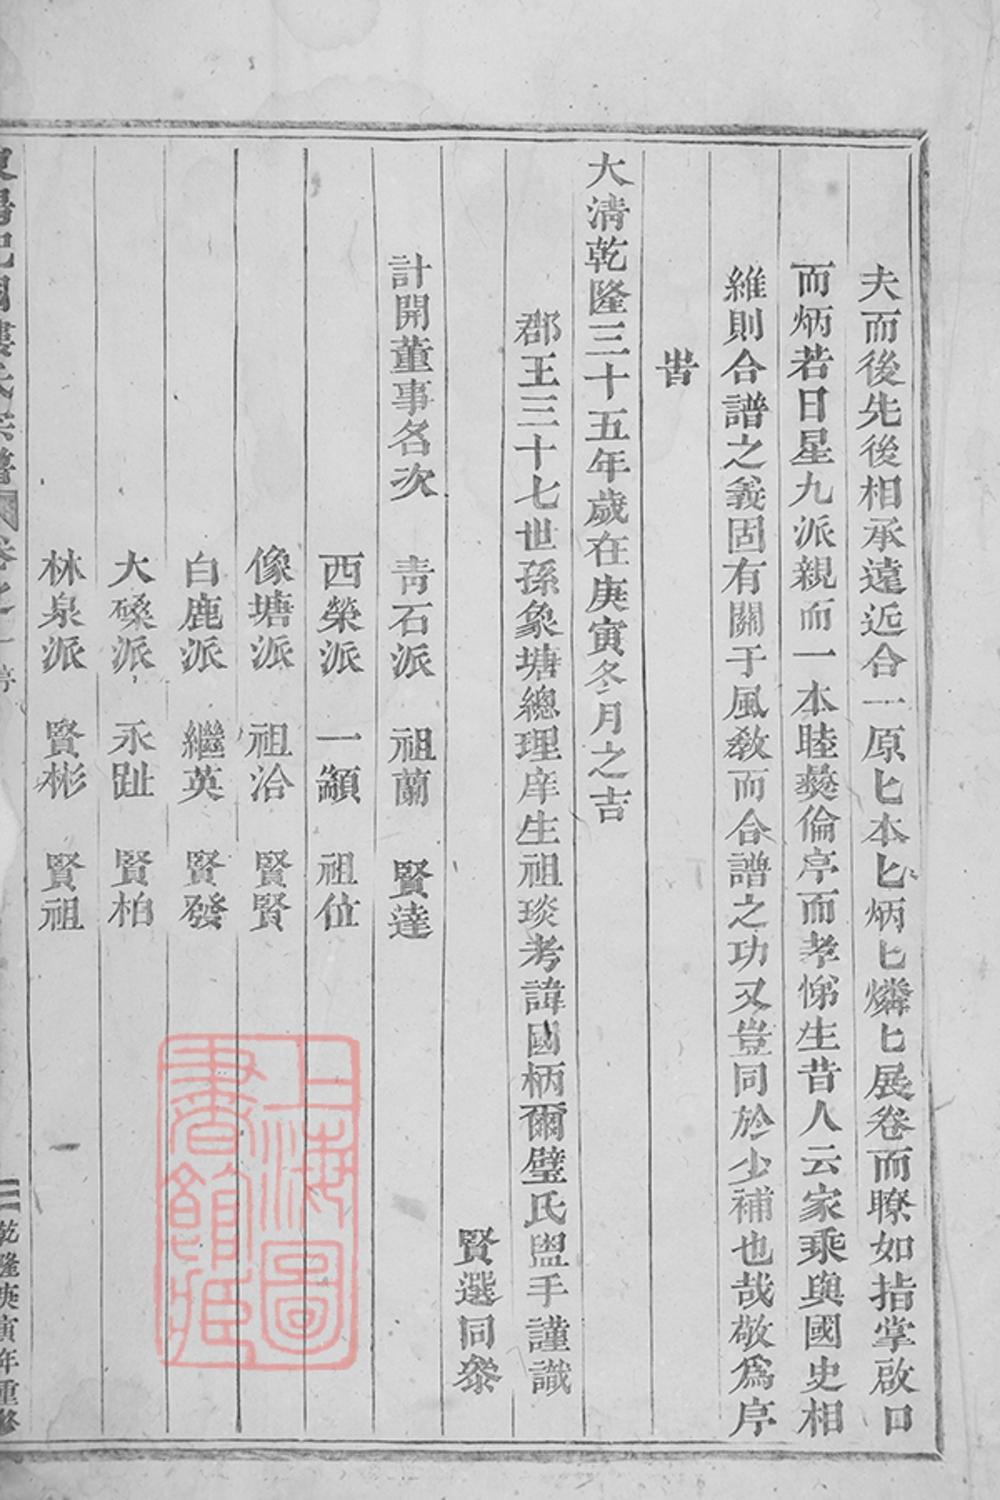 夫而後先後相承遠近合一原匕本匕炳匕燐匕展卷而瞭如指掌啟口
而炳若日星九派親而一本睦彜倫序而孝悌生昔人云家乘與國史相
維則合譜之義固有關于風敎而合譜之功又豈同於少補也哉敬爲序
旹
大清乾隆三十五年歲在庚寅冬月之吉
郡王三十七世孫象塘總理庠生祖琰考諱國柄爾璧氏盥手謹識
賢選同叅
計開董事名次 靑石派 祖蘭 賢達
西榮派 一顓 祖位
像塘派 祖洽 賢賢
白鹿派 繼英 賢發
大磉派 永趾 賢柏
林泉派 賢彬 賢祖
東陽杞國樓氏宗譜 卷之一 序 乾隆庚寅年重修
上海圖書館藏